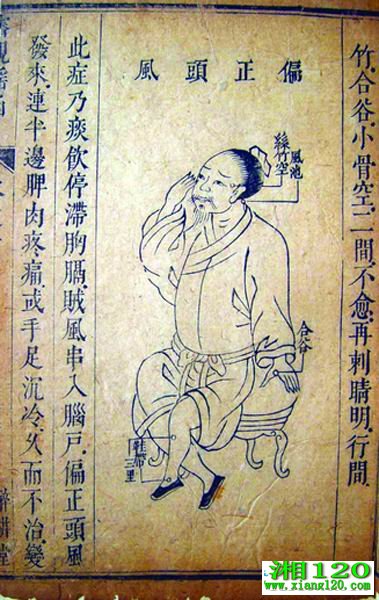 竹,合谷小骨空,二間,不愈,再刺睛明,行間
偏正頭風
風池
絲竹空
合谷
鞋帶
三里
此症乃痰飲停滯胸膈,賊風串入腦戶,偏正頭風
發來,連半邊脾肉疼痛,或手足沉冷,久而不治,變
湘120
www.xiang120.com